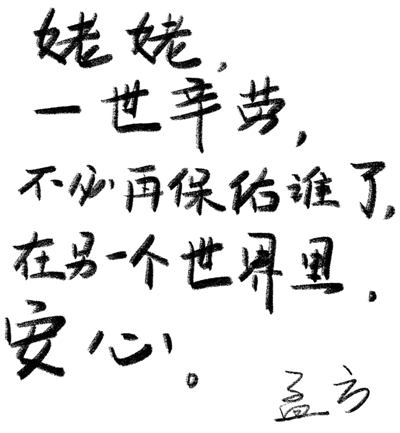 姥姥，
一世辛劳，
不必再保佑谁了，
在另一个世界里，
安心。
孟方